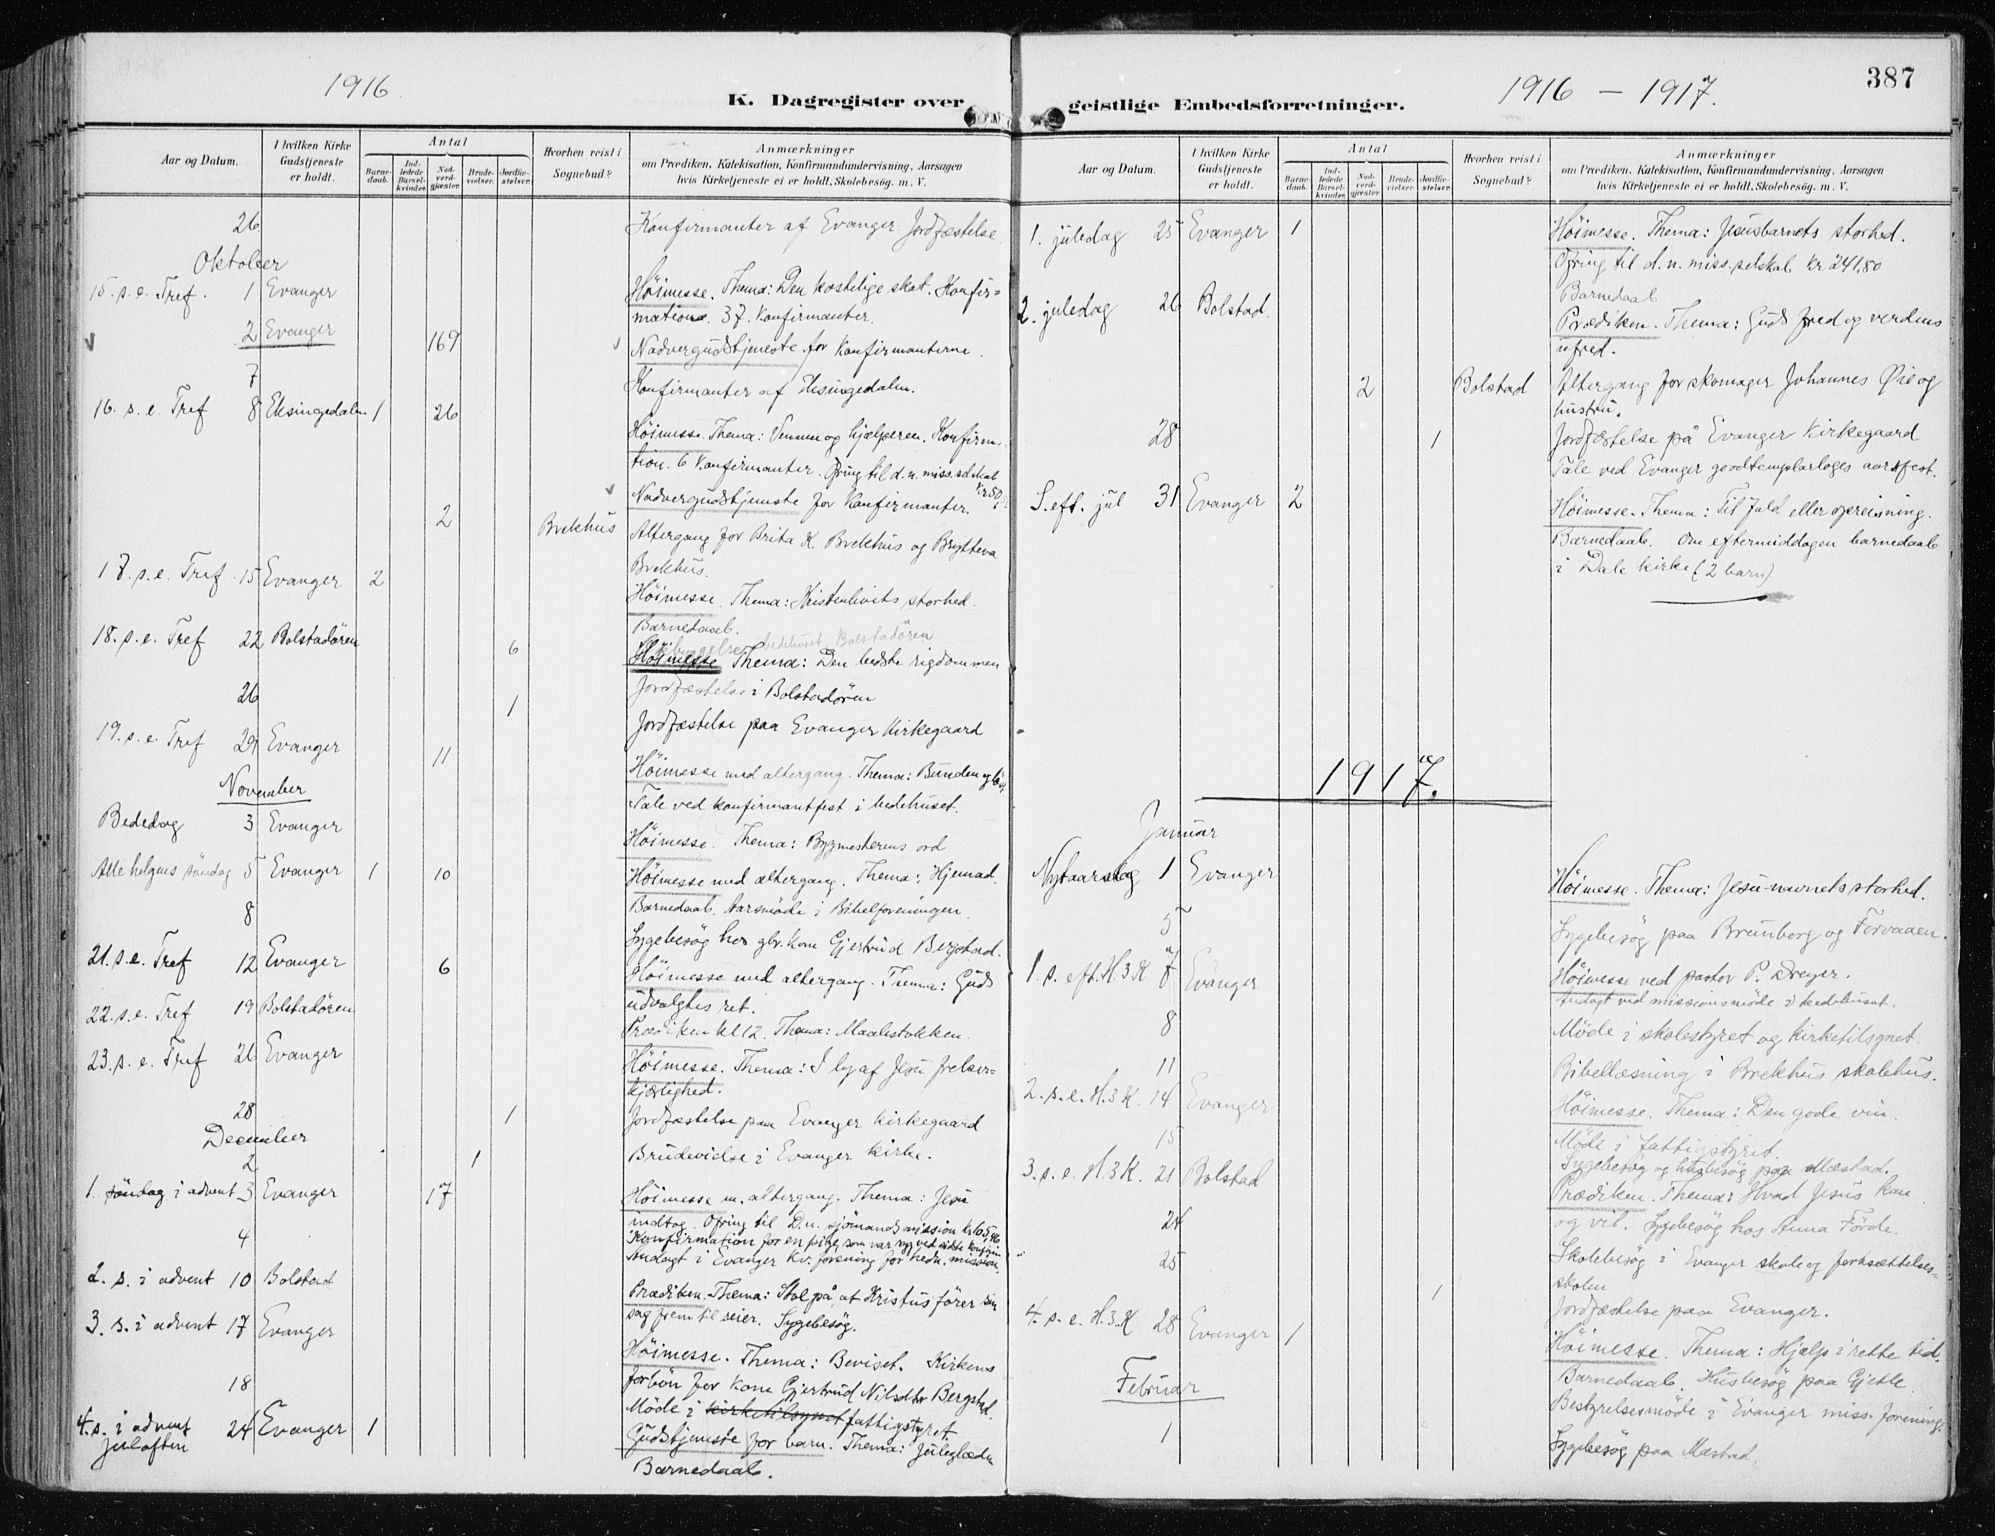 1916
K. Dagregister over
Aar og Datum.
I hvilken Kirke Gudstjeneste er holdt.
Antal
Barne-daab.
Ind-ledede Barsel-kvinder.
Nad-verd-gjæster.
Brude-vielser.
Jordfæ-stelser.
Hvorhen reist i Sognebud?
Anmærkninger
om Prædiken, Katekisation, Konfirmandundervisning, Aarsagen
hvis Kirketjeneste ei er holdt, Skolebesøg. m. V.
26 Konfirmanter af Evanger. Jordfæstelse
Oktober
15. s. e. Tref. 1 Evanger Höimesse. Thema: Den kostelige skat. Konfir=
mation. 37. Konfirmanter.
2 Evanger 169 Nadvergudstjeneste for Konfirmanterne.
7 Konfirmanter af Eksingedalen.
16. s. e. Tref 8 Eksingedalen 1 26 Höimesse. Thema: Vennen og hjælperen. Konfirma-
tion. 6 Konfirmanter. Ofring til d. n. miss. selskab
Kr 50
Nadvergudstjeneste for Konfirmanter.
2 Brekhus Altergang for Brita K. Brekhus og Brytteva
Brekhus.
17. s. e. Tref. 15 Evanger 2 Höimesse. Thema: Kristenlivets storhed.
Barnedaab.
bedehuset Bolstadören
18. s. e. Tref 22 Bolstadören 6 Höimesse Thema: Den bedste rigdommen
Jordfæstelse i Bolstadören
26 1 Jordfæstelse paa Evanger Kirkegaard
19. s. e. Tref 29 Evanger 11 Höimesse med altergang. Thema: Bunden og løst
Tale ved konfirmantfest i bedehuset.
November
Bededag 3 Evanger Höimesse. Thema: Bygmesterens ord
Alle helgens söndag 5 Evanger 1 10 Höimesse med altergang. Thema: Hjemad.
Barnedaab. Aarsmöde i Bibelforeningen.
8 Sygebesög hos gbr. kone Gjertrud Bergstad.
21. s. e. Tref 12 Evanger 6 Höimesse med altergang. Thema: Guds
udvalgtes ret.
22. s. e. Tref 19 Bolstadören Prædiken kl 12. Thema: Maalestokken.
23. s. e. Tref 26 Evanger Höimesse. Thema: I ly af Jesu frelser=
kjærlighed.
28 1 Jordfæstelse paa Evanger Kirkegaard
December
2 1 Brudevielse i Evanger Kirke.
1. söndag i advent 3 Evanger 17 Höimesse m. altergang. Thema: Jesu
indtog. Ofring til D. n. sjömandsmission kr 65,46
Konfirmation for en pige, som var syg ved sidste konfirm
4 Andagt i Evanger kv. forening for hedn. mission.
2. s. i advent 10 Bolstad Prædiken. Thema: Stol på, at Kristus förer sin
sag frem til seier. Sygebesög.
3. s. i advent 17 Evanger Höimesse. Thema: Beviset. Kirkens
forbön for kone Gjertrud Nilsdtr Bergstad.
18 Möde i kirketilsynet fattigstyret.
4. s. i advent 24 Evanger 1 Gudstjeneste for barn. Thema: Juleglæden
Juleaften
Barnedaab.
geistlige Embedsforretninger.
1916 – 1917.
387
Aar og Datum.
I hvilken Kirke Gudstjeneste er holdt.
Antal
Barne-daab.
Ind-ledede Barsel-kvinder.
Nad-verd-gjæster.
Brude-vielser.
Jordfæ-stelser.
Hvorhen reist i Sognebud?
Anmærkninger
om Prædiken, Katekisation, Konfirmandundervisning, Aarsagen
hvis Kirketjeneste ei er holdt, Skolebesøg. m. V.
1. juledag 25 Evanger 1 Höimesse. Thema: Jesusbarnets storhed.
Ofring til d. n. miss. selskab kr 241,80
Barnedaab
2. juledag 26 Bolstad. Prædiken. Thema: Guds fred og verdens
ufred.
2 Bolstad Altergang for skomager Johannes Øie og
hustru.
28 1 Jordfæstelse på Evanger Kirkegaard
Tale ved Evanger goodtemplarloges aarsfest.
S. eft. jul 31 Evanger 2 Höimesse. Thema: Til fald eller opreisning.
Barnedaab. Om eftermiddagen barnedaab
i Dale kirke (2 barn)
1917.
Januar
Nytaarsdag 1 Evanger Höimesse. Thema: Jesu-navnets storhed.
5 Sygebesög paa Brunborg og Fervaaen.
1. s. eft. H. 3 K 7 Evanger Höimesse ved pastor P. Dreyer.
Andagt ved missionsmöde i bedehuset.
8 Möde i skolestyret og kirketilsynet.
11 Bibellæsning i Brekhus skolehus.
2. s. e. H. 3 K. 14 Evanger Höimesse. Thema: Den gode vin.
15 Möde i fattigstyret.
Sygebesög og husbesög paa Mæstad.
3. s. e. H. 3 K. 21 Bolstad Prædiken. Thema: Hvad Jesus kan
og vil. Sygebesög hos Anna Förde.
24 Skolebesög i Evanger skole og fortsættelses=
skolen
25 1 Jordfæstelse paa Evanger.
4. s. e. H. 3. K 28 Evanger 1 Höimesse. Thema: Hjælp i rette tid.
Barnedaab. Husbesög paa Gjelle.
Februar
Bestyrelsesmöde i Evanger miss. forening.
1 Sygebesög paa Mæstad.